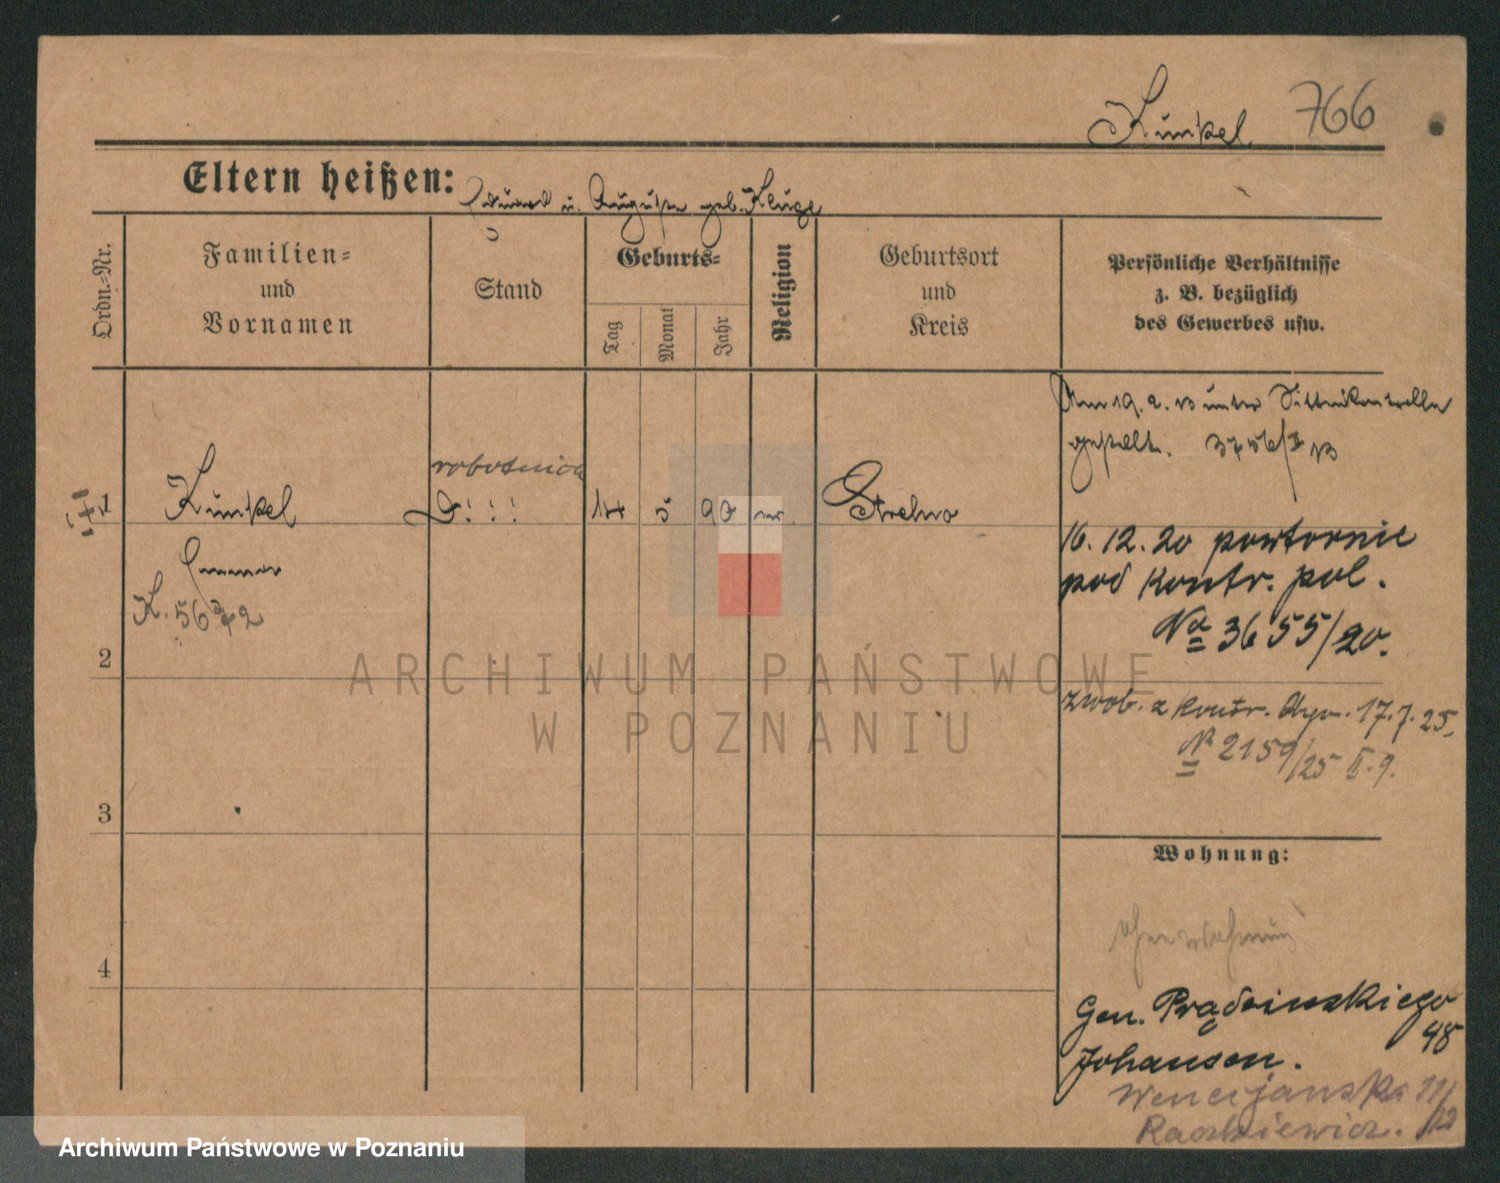 Kunkel 766
Eltern heißen: Eduard u. Auguste geb. Kluge
Ordn.-Nr.
Familien-
und
Vornamen
Stand
Geburts-
Tag
Monat
Jahr
Religion
Geburtsort
und
Kreis
Persönliche Verhältnisse
z. B. bezüglich
des Gewerbes usw.
Am 19. 2. 13 unter Sittenkontrolle
gestellt. 3756/I 13
robotnica
1 Kunkel 14 5 90 Strelno
16. 12. 20 powtornie
pod kontr. pol.
№ 3655/20.
K. 5672
2
zwob. z kontr. 17.7.25.
№ 2159/25 II.9.
3
Wohnung:
ohne Wohnung
4
Gen. Prądzinskiego
48
Johansen.
Wenecjanska 11/
Raszkiewicz. 12
ARCHIWUM PAŃSTWOWE
W POZNANIU
Archiwum Państwowe w Poznaniu